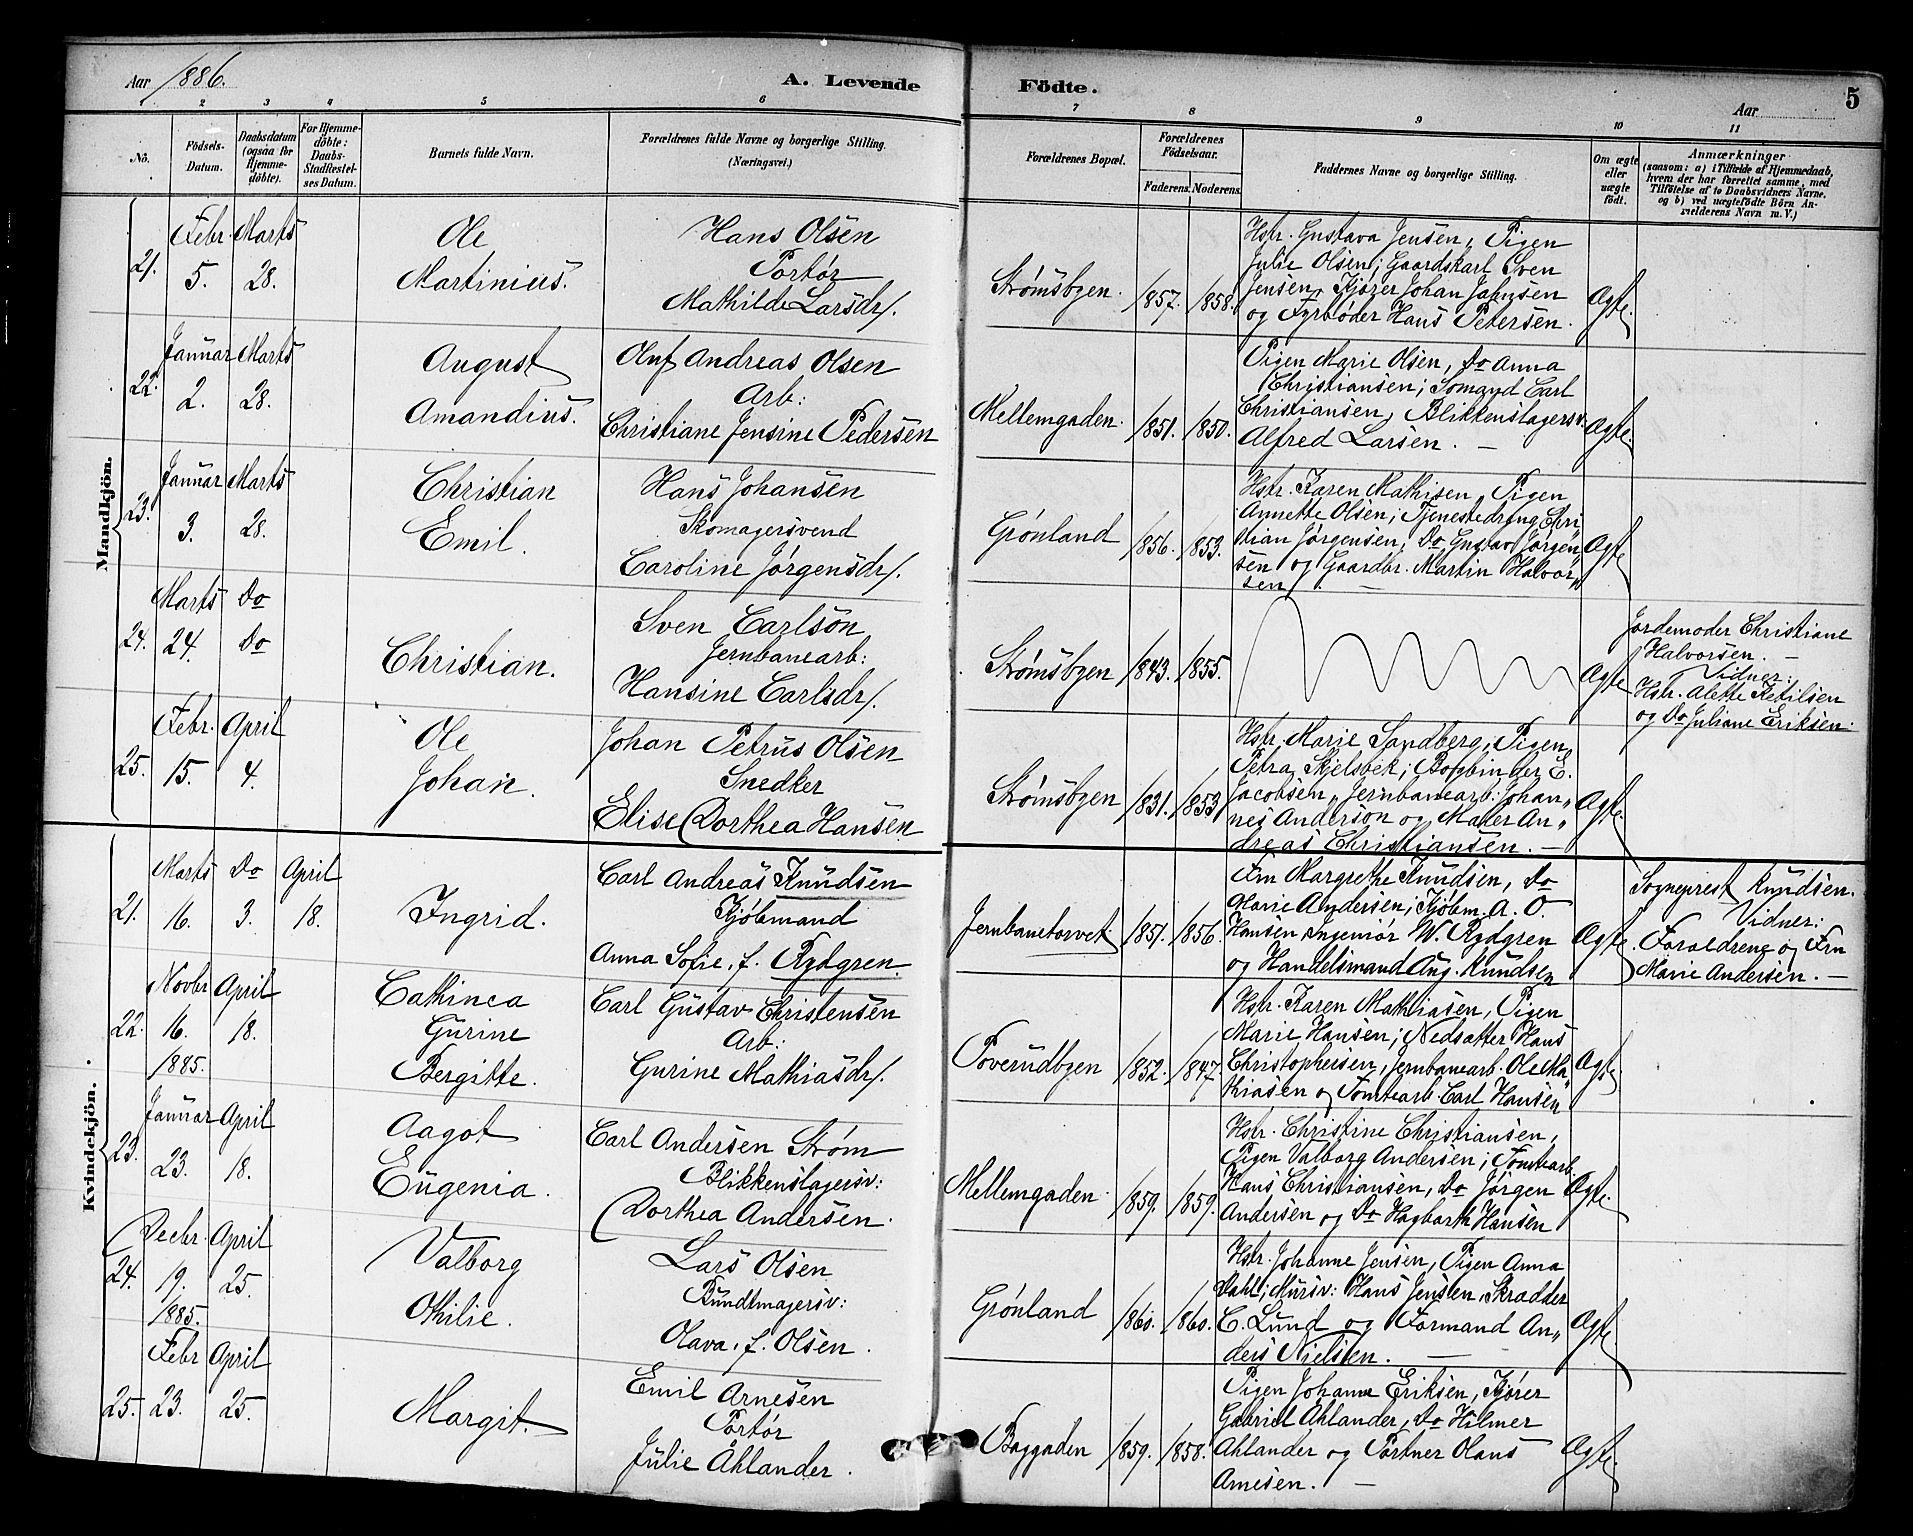 Aar 1886.
A. Levende Födte.
Aar
5
1 2 3 4 5 6 7 8 9 10 11
No.
Födsels-Datum.
Daabsdatum (ogsaa for Hjemme-döbte).
For Hjemme-döbte: Daabs-Stadfæstel-ses Datum.
Barnets fulde Navn.
Forældrenes fulde Navne og borgerlige Stilling.
(Næringsvei.)
Forældrenes Bopæl.
Forældrenes Födselsaar.
Faderens. Moderens.
Faddernes Navne og borgerlige Stilling.
Om ægte eller uægte födt.
Anmærkninger
(saasom: a) i Tilfælde af Hjemmedaab,
hvem der har forrettet samme, med
Tilföielse af to Daabsvidners Navne,
og b) ved uægtefödte Börn An-
melderens Navn m. V.)
Mandkjön.
21.
Febr. 5.
Marts 28.
Ole
Martinius.
Hans Olsen
Portør
Mathilde Larsdr.
Strømsbyen
1857. 1858.
Hstr. Gustava Jensen, Pigen
Julie Olsen; Gaardskarl Sven
Jensen, Kjører Johan Johnsen
og Fyrbøder Hans Petersen.
Ægte.
22.
Januar 2.
Marts 28.
August
Amandius.
Oluf Andreas Olsen
Arb:
Christiane Jensine Pedersen
Mellemgaden.
1851. 1850.
Pigen Marie Olsen, Do Anna
Christiansen; Sømand Carl
Christiansen, Blikkenslagersv.
Alfred Larsen. —
Ægte.
23.
Januar 3.
Marts 28.
Christian
Emil.
Hans Johansen
Skomagersvend
Caroline Jørgensdr.
Grønland
1856. 1853.
Hstr. Karen Mathisen, Pigen
Annette Olsen; Tjenestedreng Chri-
stian Jørgensen, Do Gustav Jørgen-
sen og Gaardbr. Martin Halvor-
sen
Ægte
24.
Marts 24.
Do Do
Christian.
Sven Carlson
Jernbanearb:
Hansine Carlsdr.
Strømsbyen
1843. 1855.
Ægte
Jordemoder Christiane
Halvorsen. —
Vidner:
Hstr. Alette Ketilsen
og Do Juliane Eriksen.
25.
Febr. 15.
April 4.
Ole
Johan.
Johan Petrus Olsen
Snedker
Elise Dorthea Hansen
Strømsbyen
1831. 1853
Hstr. Marie Sandberg, Pigen
Petra Skjelsbek; Bogbinder E.
Jacobsen, Jernbanearb: Johan-
nes Anderson og Maler An-
dreas Christiansen. —
Ægte.
Kvindekjön.
21.
Marts 16.
Do 3.
April 18.
Ingrid.
Carl Andreas Knudsen
Kjøbmand
Anna Sofie, f. Rydgren.
Jernbanetorvet
1851. 1856.
Fru Margrethe Knudsen, Do
Marie Andersen; Kjøbm. A. O.
Hansen Ingeniør W. Rydgren
og Handelsmand Aug. Knudsen
Ægte
Sogneprest Knudsen.
Vidner:
Forældrene og Fru
Marie Andersen. —
22.
Novbr 16. 1885.
April 18.
Cathinca
Gurine
Bergitte.
Carl Gustav Christensen
Arb:
Gurine Mathiasdr.
Toverudbyen
1852. 1847.
Hstr. Karen Mathiasen, Pigen
Marie Hansen; Nedsætter Hans
Christophersen, Jernbanearb. Ole Ma-
thiasen og Tomtearb. Carl Hansen
Ægte
23.
Januar 23.
April 18.
Aagot
Eugenia.
Carl Andersen Strøm
Blikkenslagersv:
Dorthea Andersen.
Mellemgaden.
1859. 1859.
Hstr. Christine Christiansen,
Pigen Valborg Andersen; Tomtearb.
Hans Christiansen, Do Jørgen
Andersen og Do Hagbarth Hansen
Ægte.
24.
Decbr. 19. 1885.
April 25.
Valborg
Othilie.
Lars Olsen
Bundtmagersv:
Olava, f. Olsen.
Grønland
1860. 1860.
Hstr. Johanne Jensen, Pigen Anna
Dahl; Mursv: Hans Jensen, Skrædder
C. Lund og Formand An-
ders Nielsen. —
Ægte
25.
Febr 23.
April 25.
Margit.
Emil Arnesen
Portør
Julie Åhlander.
Baggaden
1859. 1858.
Pigen Johanne Eriksen, Kjører
Gabriel Ahlander, Do Hilmer
Ahlander og Portner Olaus
Arnesen. —
Ægte.